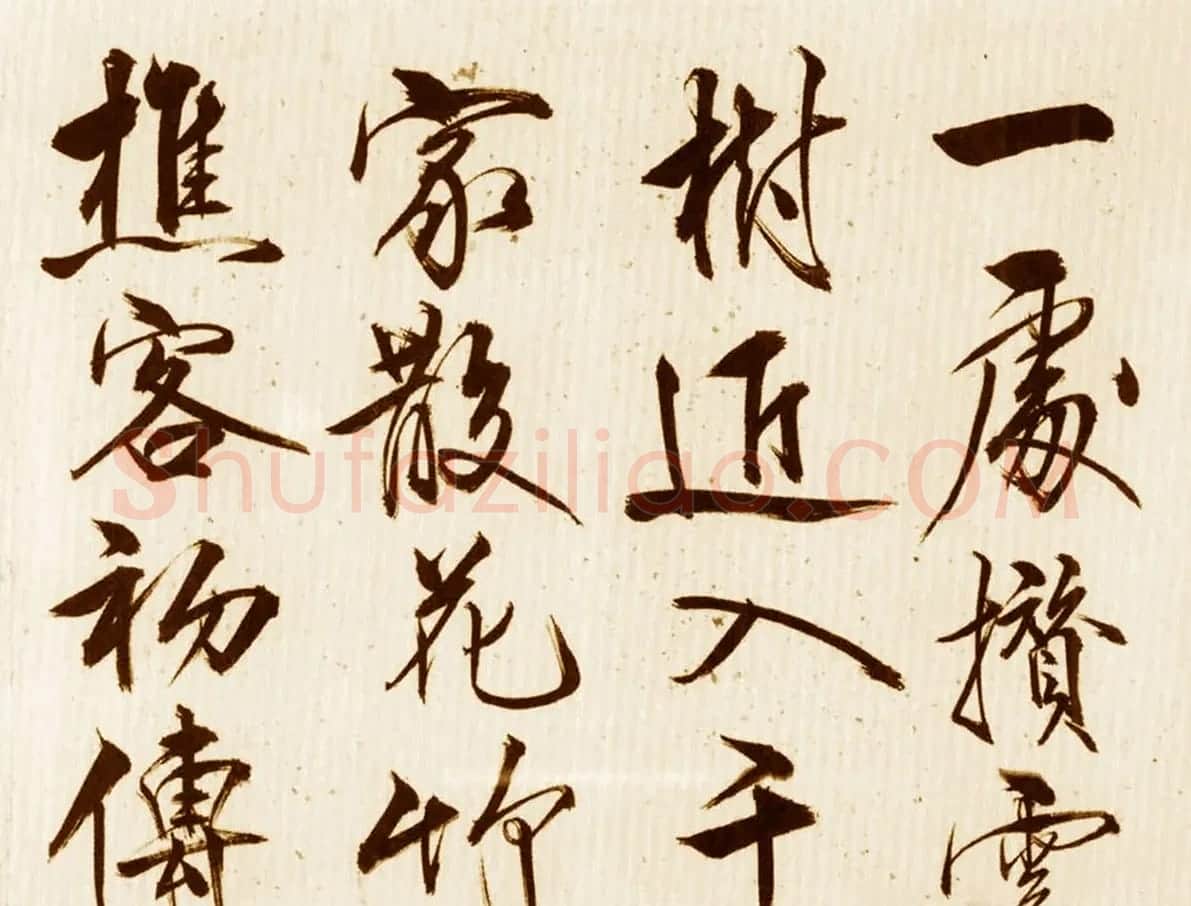 一處攢雲
樹近入千
家散花竹
樵客初傳
Shufaziliao.COM